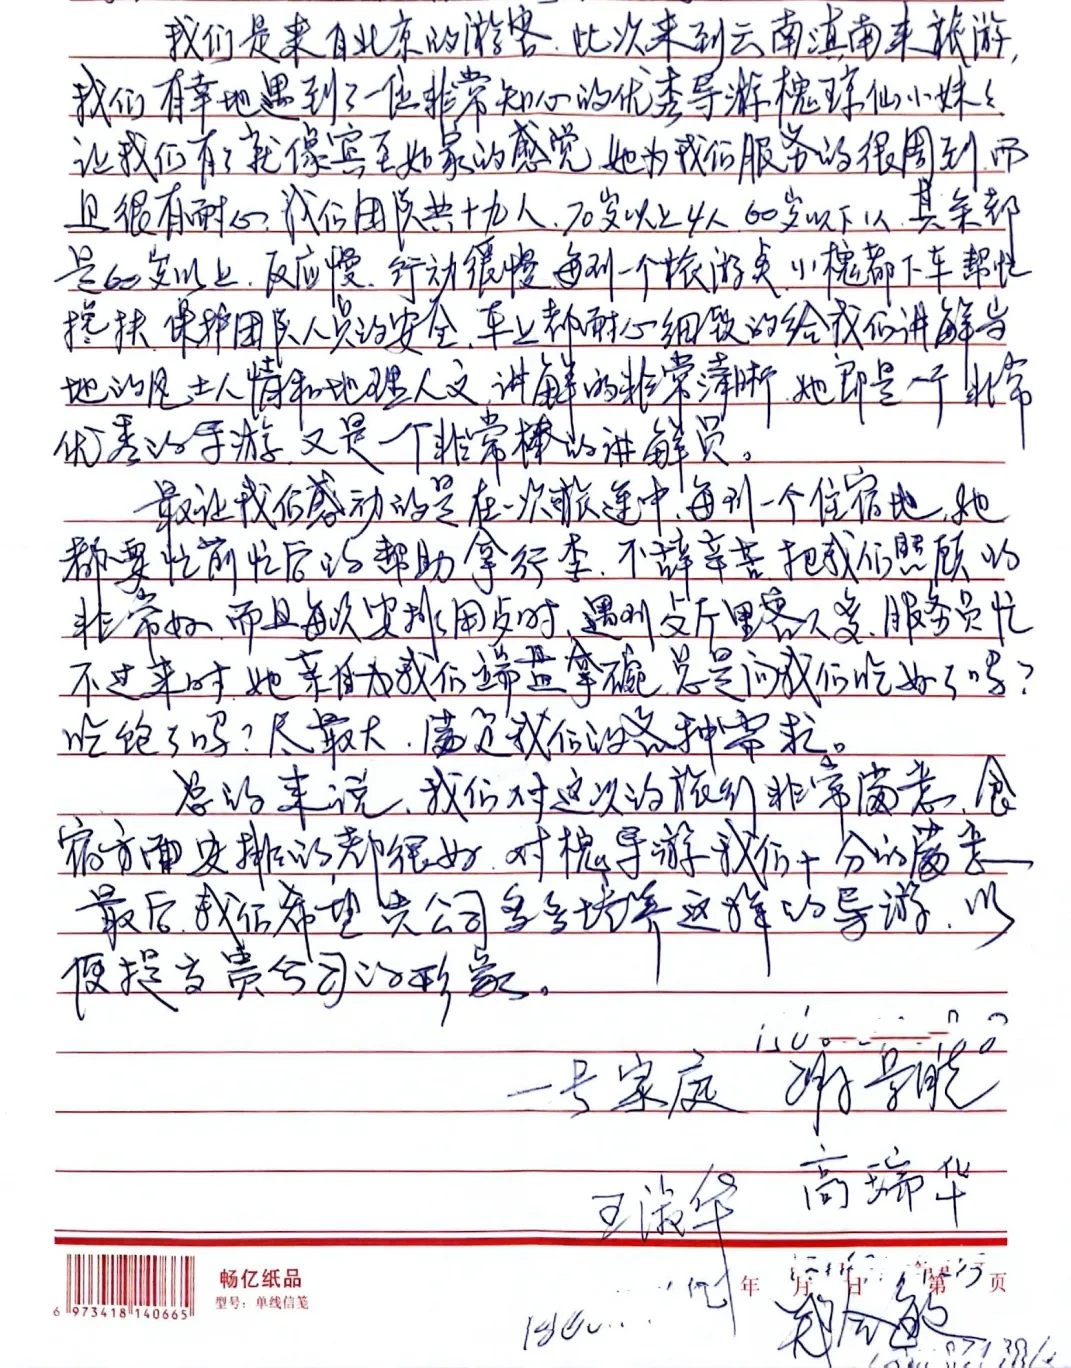 我们是来自北京的游客.此次来到云南滇南来旅游,
我们有幸地遇到了一位非常知心的优秀导游槐琼仙小妹々
让我们有了就像宾至如家的感觉.她为我们服务的很周到.而
且很有耐心.我们团队共十九人.70岁以上4人60岁以下1人.其余都
是60岁以上.反应慢.行动缓慢每到一个旅游点.小槐都下车帮忙
搀扶.保护团队人员的安全.车上都耐心细致的给我们讲解当
地的风土人情和地理人文.讲解的非常清晰.她即是一个非常
优秀的导游.又是一个非常棒的讲解员。
最让我们感动的是在一次旅途中.每到一个住宿地.她
都要忙前忙后的帮助拿行李.不辞辛苦把我们照顾的
非常好.而且每次安排用点时.遇到点厅里客人多.服务员忙
不过来时.她亲自为我们端盘拿碗.总是问我们吃好了吗?
吃饱了吗?尽最大.满足我们的各种需求。
总的来说.我们对这次的旅行非常满意.食
宿方面安排的都很好.对槐导游我们十分的满意
最后.我们希望贵公司多多培养这样的导游.以
便提高贵公司的形象。
一号家庭 谢景晓
高瑞华
王淑华
畅亿纸品
型号:单线信笺
年 月 日 第 页
6 973418 140665